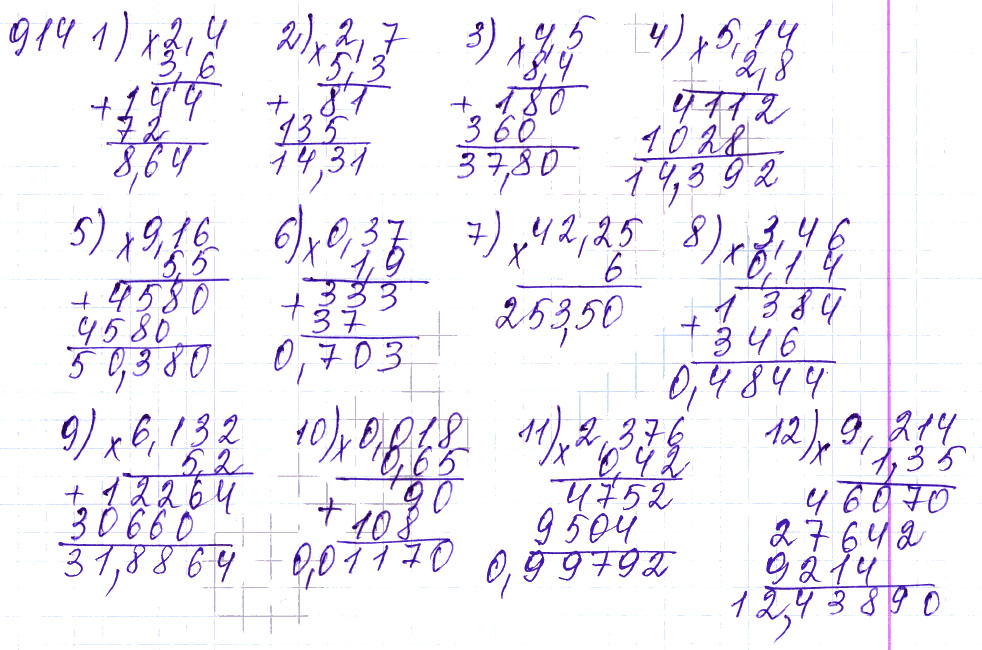 914 1) ×2,4 2) ×2,7 3) ×4,5 4) ×5,14
3,6 5,3 8,4 2,8
+144 +81 +180 4112
72 135 360 1028
8,64 14,31 37,80 14,392
5) ×9,16 6) ×0,37 7) ×42,25 8) ×3,46
5,5 1,9 6 0,14
+4580 +333 253,50 +1384
4580 37 346
50,380 0,703 0,4844
9) ×6,132 10) ×0,018 11) ×2,376 12) ×9,214
5,2 0,65 0,42 1,35
+12264 +90 4752 46070
30660 108 9504 27642
31,8864 0,01170 0,99792 9214
12,43890